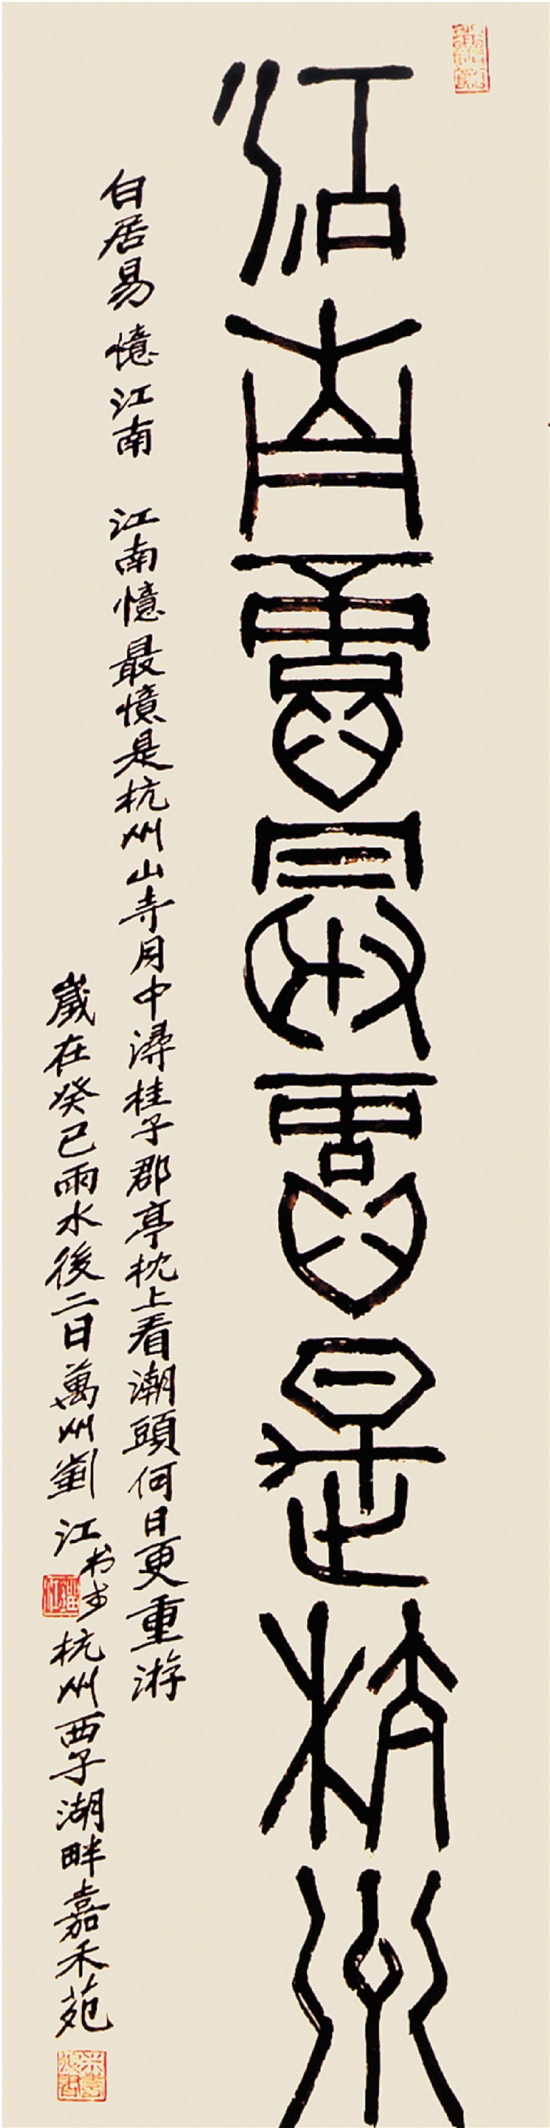 江南憶最憶是杭州
白居易 憶江南 江南憶最憶是杭州山寺月中潯桂子郡亭枕上看潮頭何日更重游
歲在癸巳雨水後二日萬州劉江书於杭州西子湖畔嘉禾苑